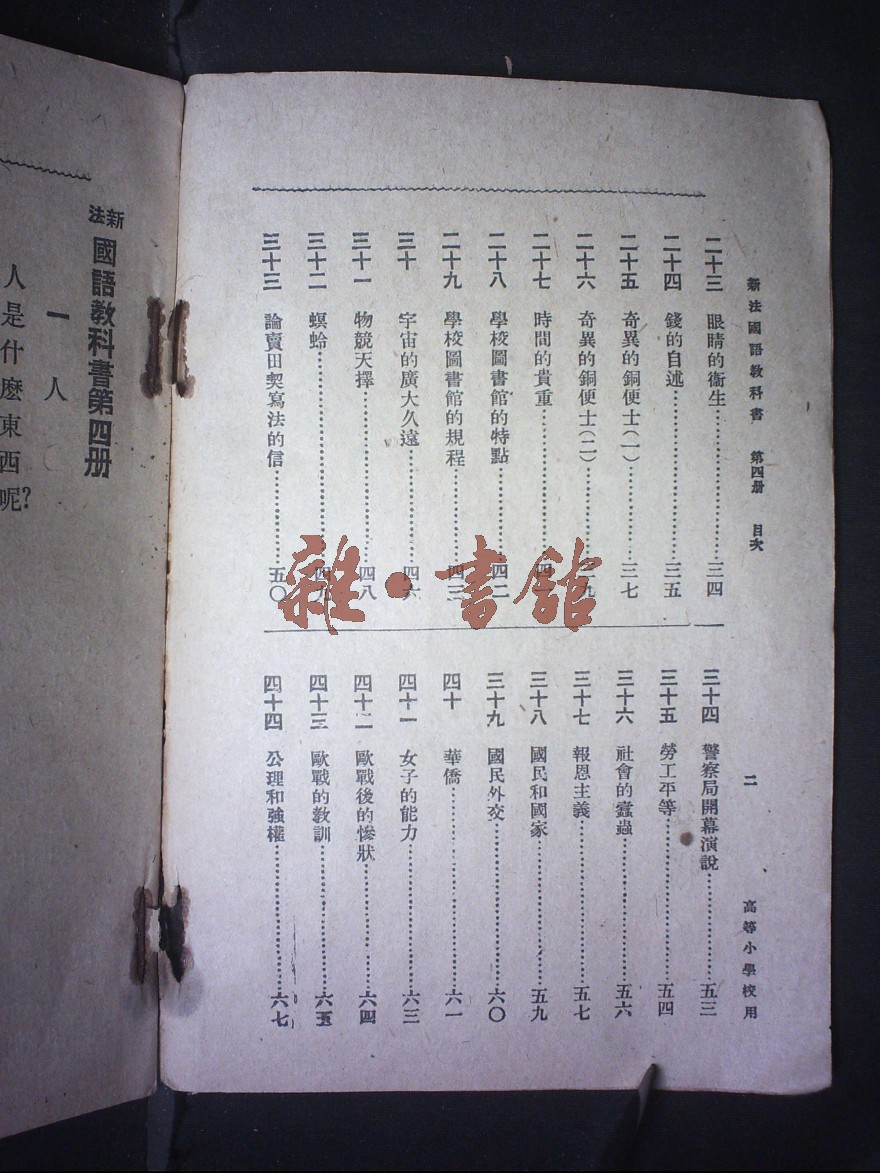 新法國語教科書 第四册 目次 二 高等小學校用
二十三 眼睛的衞生 三四
二十四 錢的自述 三五
二十五 奇異的銅便士(一) 三七
二十六 奇異的銅便士(二)
二十七 時間的貴重
二十八 學校圖書館的特點 四二
二十九 學校圖書館的規程 四三
三十 宇宙的廣大久遠 四六
三十一 物競天擇 四八
三十二 螟蛉 四九
三十三 論賣田契寫法的信 五〇
三十四 警察局開幕演說 五三
三十五 勞工平等 五四
三十六 社會的蠹蟲 五六
三十七 報恩主義 五七
三十八 國民和國家 五九
三十九 國民外交 六〇
四十 華僑 六一
四十一 女子的能力 六三
四十二 歐戰後的慘狀 六四
四十三 歐戰的教訓 六五
四十四 公理和強權 六七
新法國語教科書第四册
一 人
人是什麽東西呢?
雜·書館